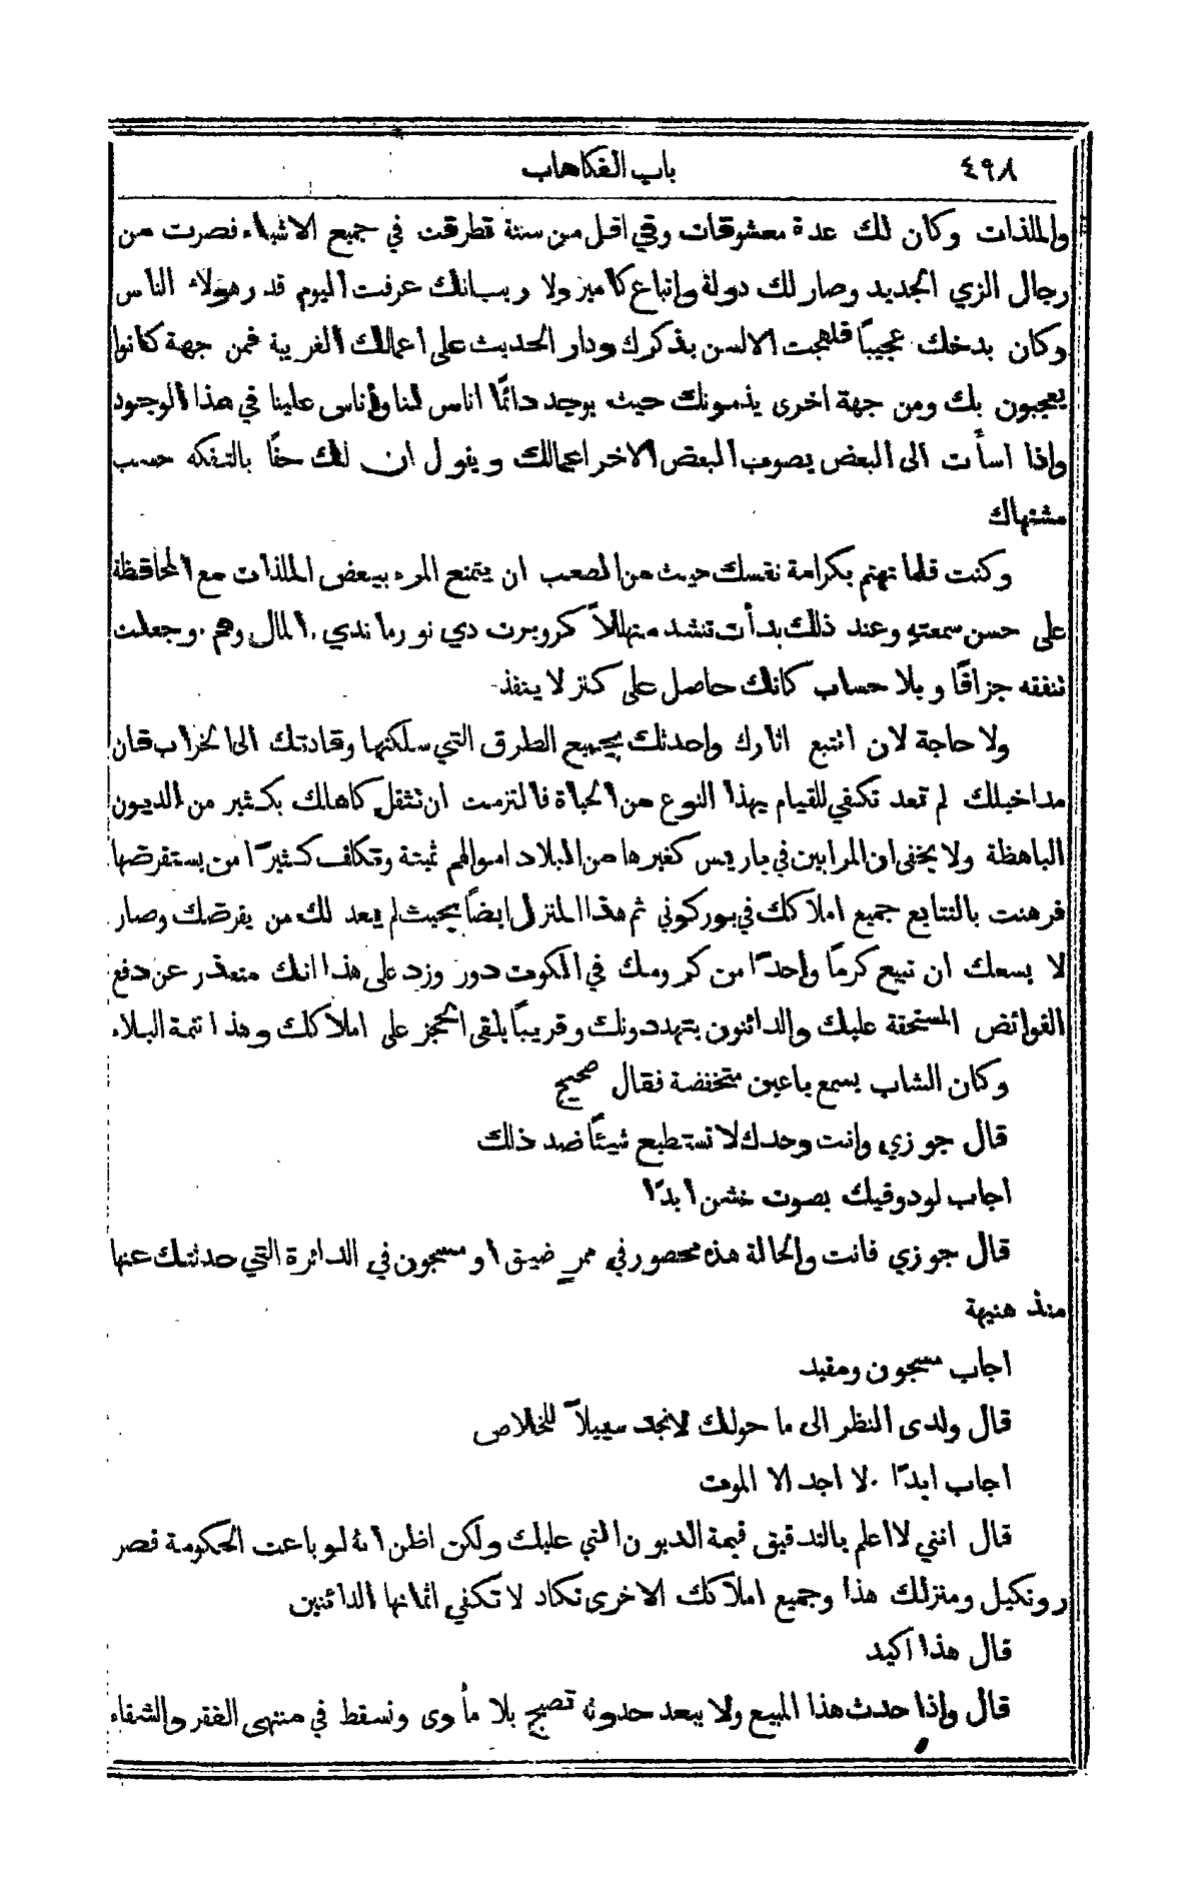 ٤٩٨
باب الفكاهات
والملذات وكان لك عدة معشوقات وفي اقل من سنة تطرقت في جميع الاشياء فصرت من
رجال الزي الجديد وصار لك دولة واتباع كامير ولا ريب انك عرفت اليوم قدر هولاء الناس
وكان بدخك عجيبًا فلهجت الالسن بذكرك ودار الحديث على اعمالك الغريبة فمن جهة كانوا
يعجبون بك ومن جهة اخرى يذمونك حيث يوجد دائمًا اناس لنا واناس علينا في هذا الوجود
واذا اسأت الى البعض يصوب البعض الاخر اعمالك ويقول ان لك حقًا بالتفكه حسب
مشتهاك
وكنت قلما تهتم بكرامة نفسك حيث من الصعب ان يتمتع المرء ببعض الملذات مع المحافظة
على حسن سمعته وعند ذلك بدأت تنشد متهللاً كروبرت دي نورماندي . المال وهم . وجعلت
تنفقه جزافًا وبلا حساب كانك حاصل على كنز لا ينفذ
ولا حاجة لان اتتبع اثارك واحدثك بجميع الطرق التي سلكتها وقادتك الى الخراب فان
مداخيلك لم تعد تكفي للقيام بهذا النوع من الحياة فالتزمت ان تثقل كاهلك بكثير من الديون
الباهظة ولا يخفى ان المرابين في باريس كغيرها من البلاد اموالهم ثمينة وتكلف كثيرًا من يستقرضها
فرهنت بالتتابع جميع املاكك في بوركوني ثم هذا المنزل ايضًا بحيث لم يعد لك من يقرضك وصار
لا يسعك ان تبيع كرمًا واحدًا من كرومك في الكوت دور وزد على هذا انك متعذر عن دفع
الفوائض المستحقة عليك والدائنون يتهددونك وقريبًا يلقى الحجز على املاكك وهذا تتمة البلاء
وكان الشاب يسمع باعين منخفضة فقال صحيح
قال جوزي وانت وحدك لا تستطيع شيئًا ضد ذلك
اجاب لودوفيك بصوت خشن ابدًا
قال جوزي فانت والحالة هذه محصور في ممر ضيق او مسجون في الدائرة التي حدثتك عنها
منذ هنيهة
اجاب مسجون ومقيد
قال ولدى النظر الى ما حولك لا تجد سبيلاً للخلاص
اجاب ابدًا . لا اجد الا الموت
قال انني لا اعلم بالتدقيق قيمة الديون التي عليك ولكن اظن انه لو باعت الحكومة قصر
رونكيل ومنزلك هذا وجميع املاكك الاخرى تكاد لا تكفي اثمانها الدائنين
قال هذا اكيد
قال واذا حدث هذا المبيع ولا يبعد حدوثه تصبح بلا مأوى وتسقط في منتهى الفقر والشقاء